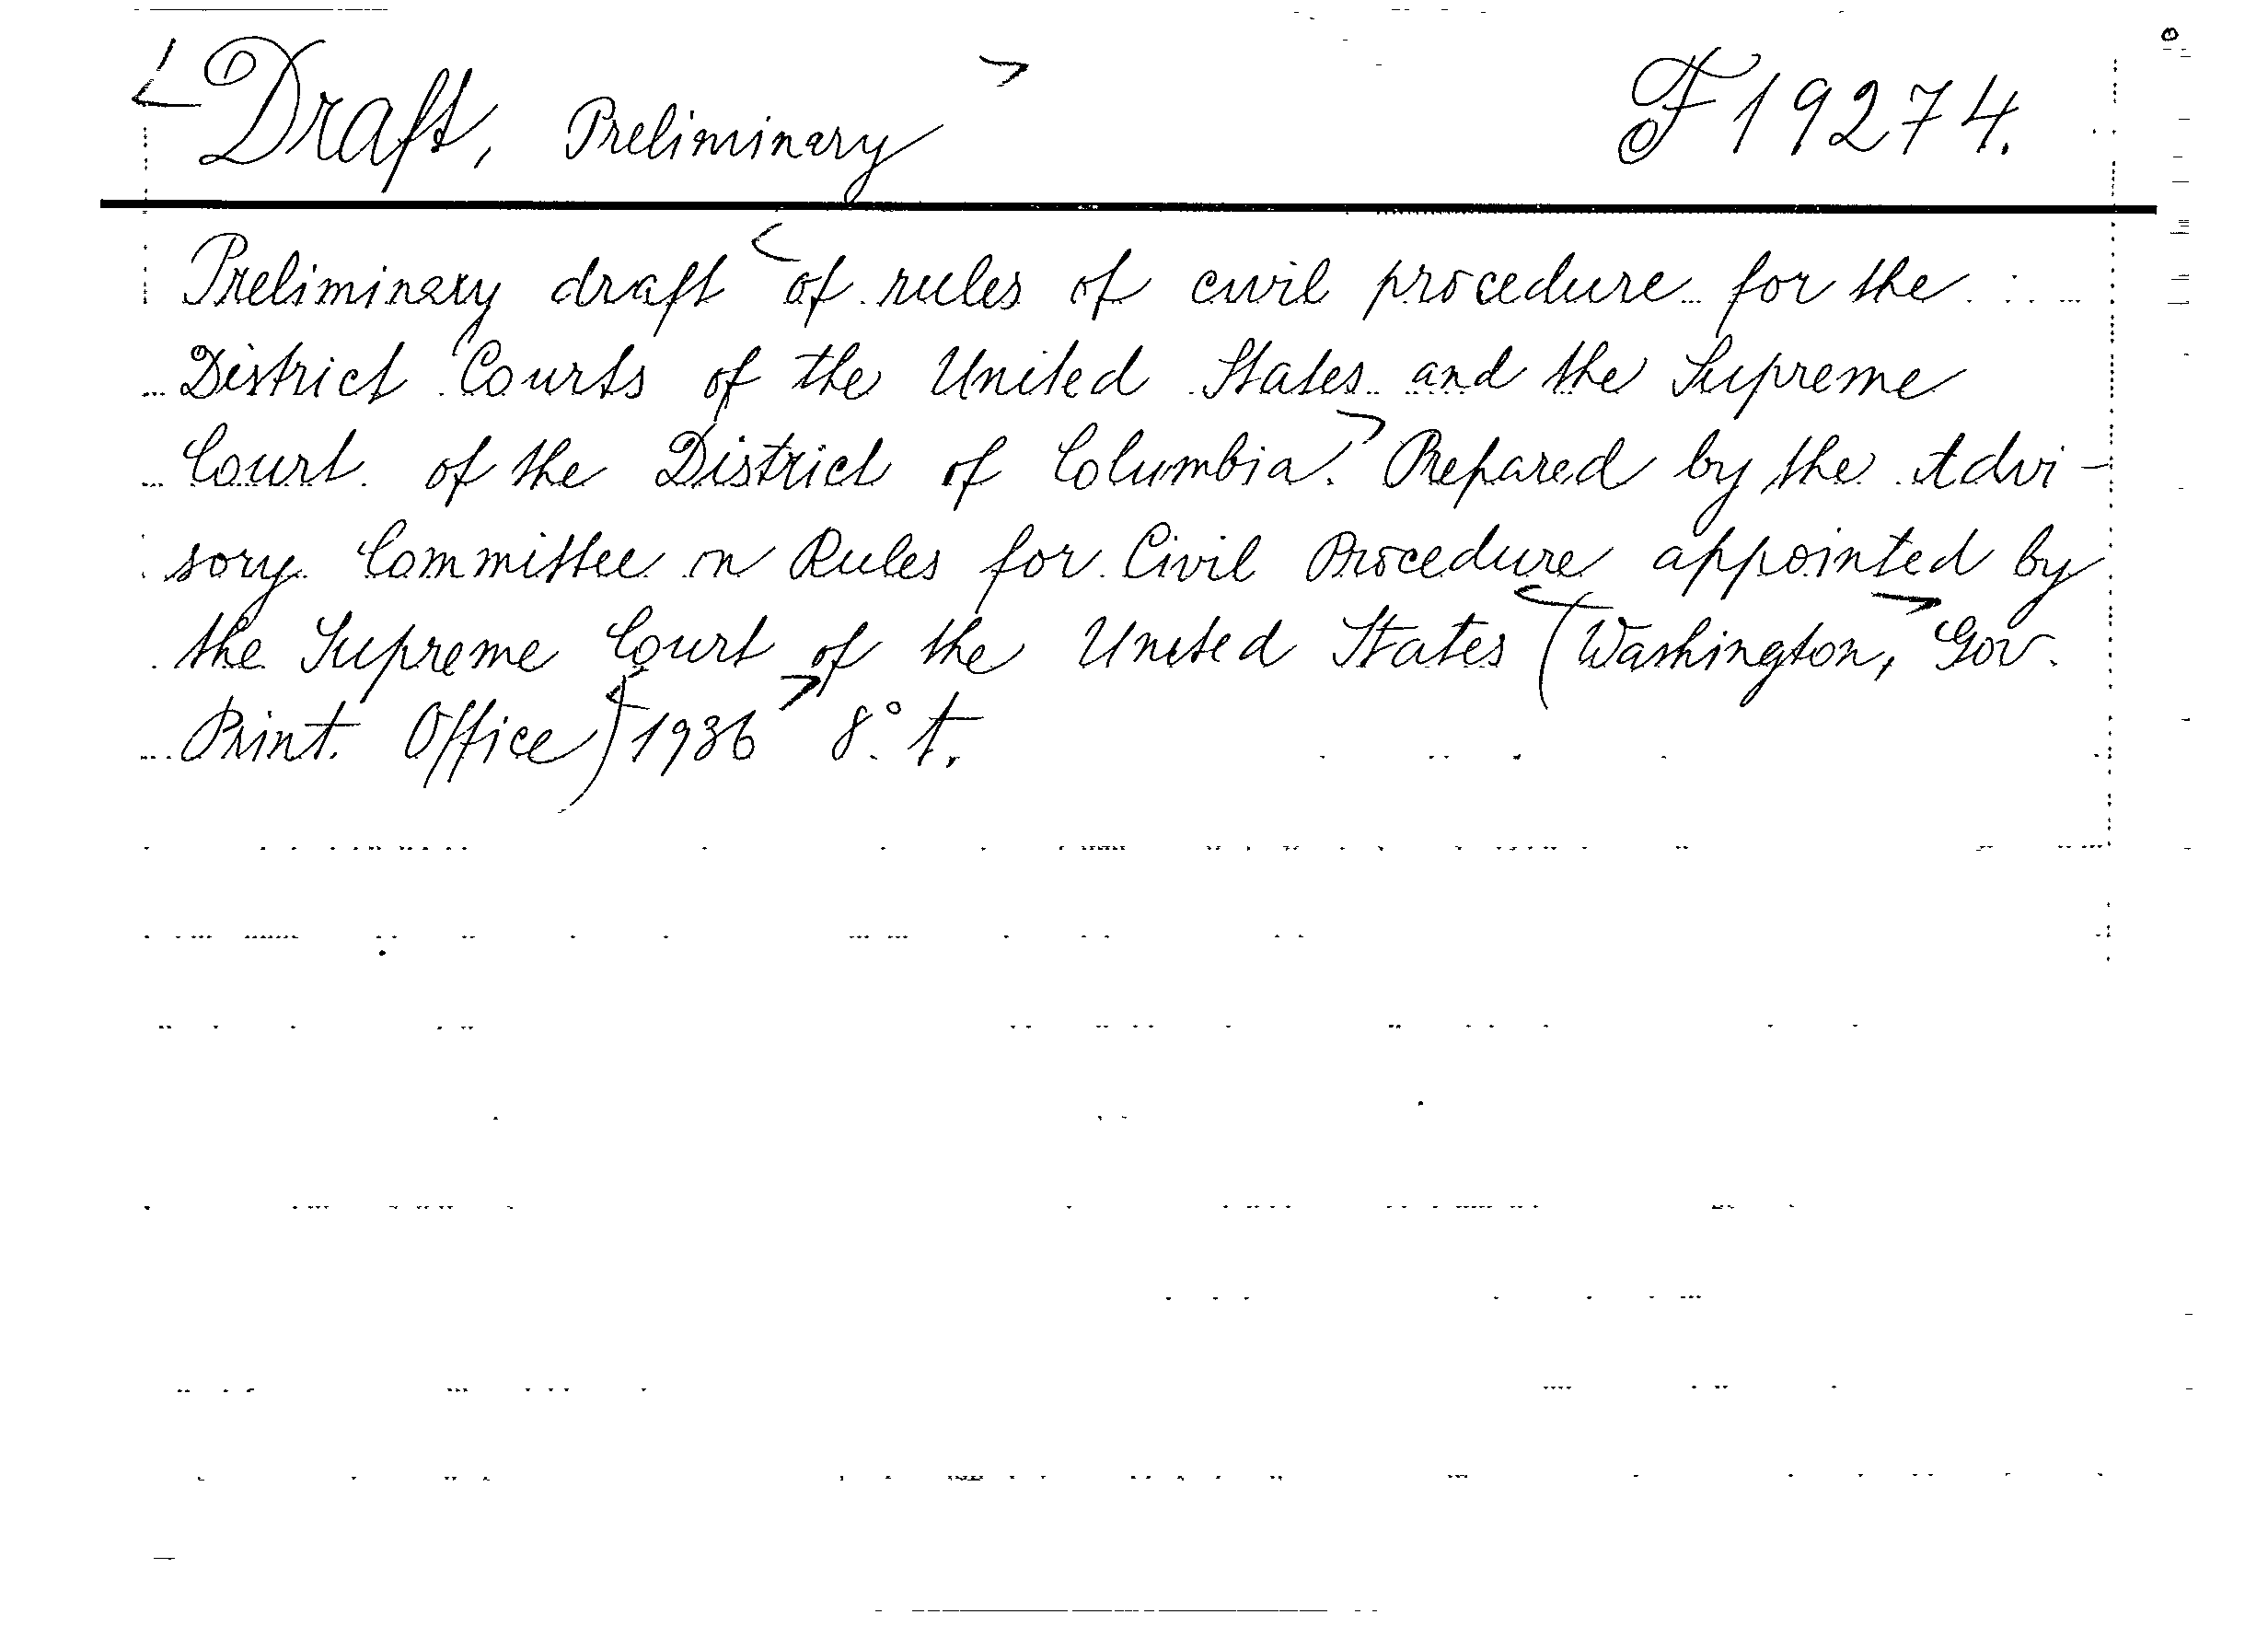 Draft, Preliminary F 19274.
Preliminary draft of rules of civil procedure for the
District Courts of the United States and the Supreme
Court of the District of Columbia. Prepared by the Advi-
sory Committee on Rules for Civil Procedure appointed by
the Supreme Court of the United States (Washington, Gov.
Print. Office) 1936 8° t.